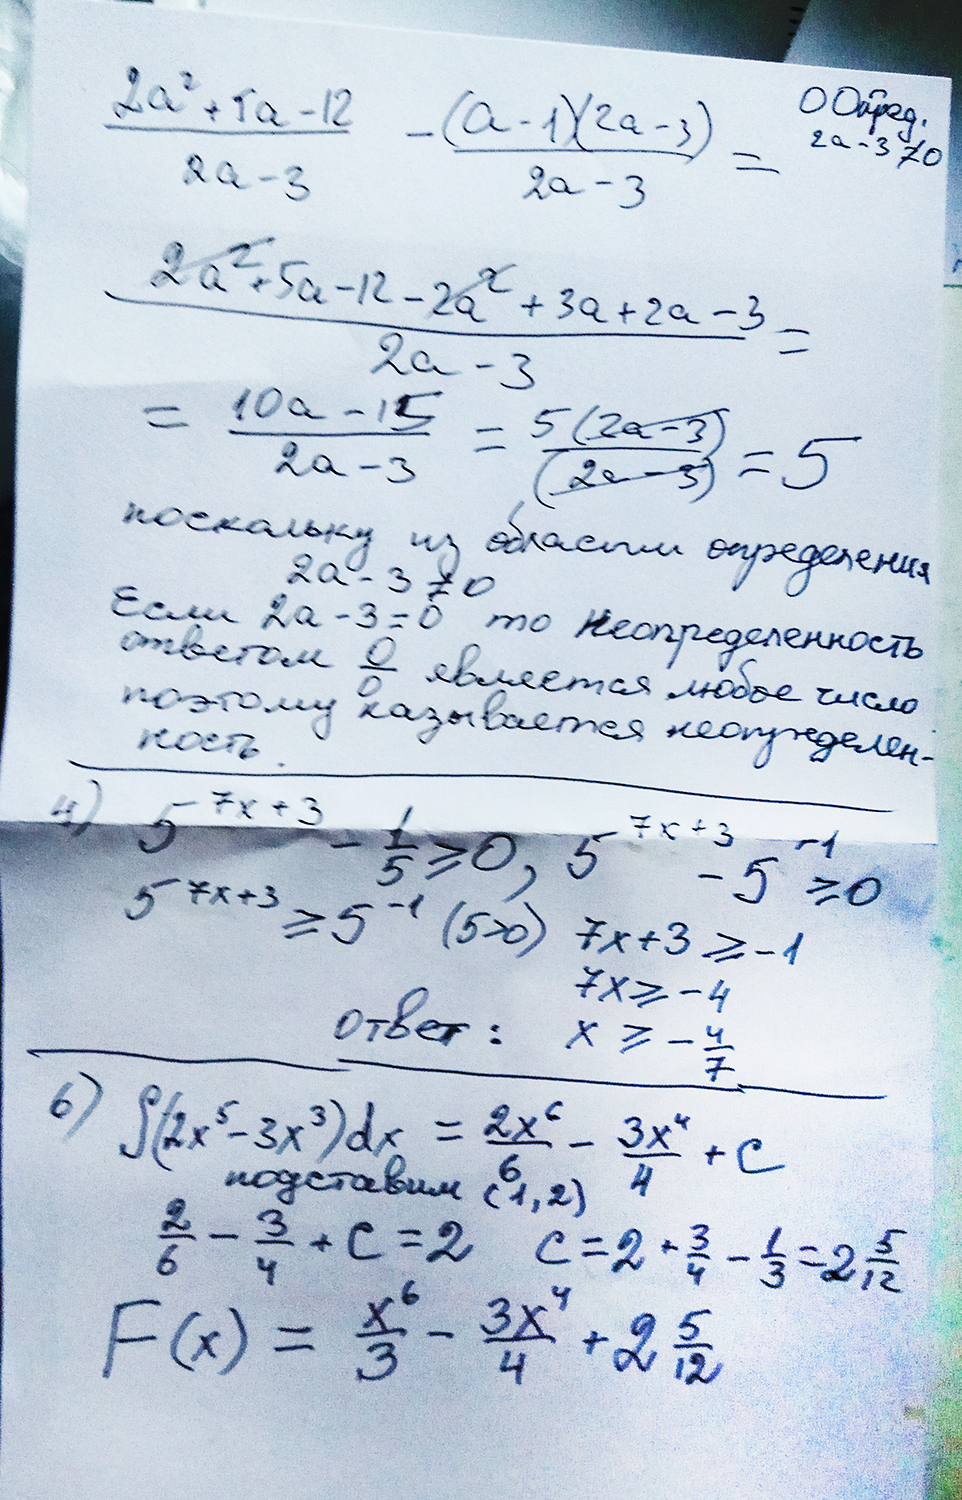 (2a² + 5a - 12)/(2a - 3) - ((a - 1)(2a - 3))/(2a - 3) =
ООпред.
2a - 3 ≠ 0
(2a² + 5a - 12 - 2a² + 3a + 2a - 3)/(2a - 3) =
= (10a - 15)/(2a - 3) = 5(2a - 3)/(2a - 3) = 5
поскольку из области определения
2a - 3 ≠ 0
Если 2a - 3 = 0 то неопределенность
ответом 0/0 является любое число
поэтому называется неопределен-
ность.
4) 5^(7x + 3) - 1/5 ⩾ 0, 5^(7x + 3) - 5^(-1) ⩾ 0
5^(7x + 3) ⩾ 5^(-1) (5>0) 7x + 3 ⩾ -1
7x ⩾ -4
ответ: x ⩾ -4/7
6) ∫(2x⁵ - 3x³)dx = 2x⁶/6 - 3x⁴/4 + C
подставим (1, 2)
2/6 - 3/4 + C = 2 C = 2 + 3/4 - 1/3 = 2 5/12
F(x) = x⁶/3 - 3x⁴/4 + 2 5/12